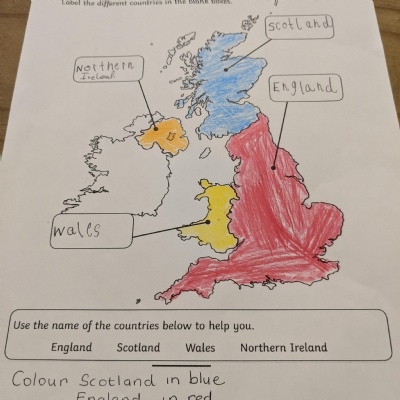 Label the different countries in the blank boxes.
Scotland
Northern
Ireland
England
Wales
Use the name of the countries below to help you.
England Scotland Wales Northern Ireland
Colour Scotland in blue
England in red